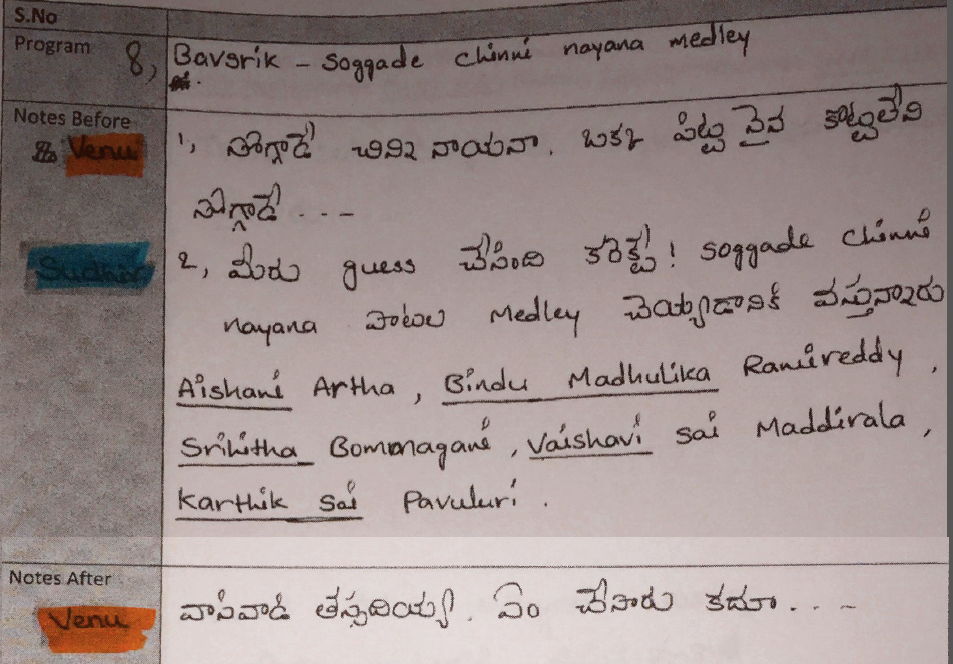 S.No
Program 8, Bavsrik - soggade chinni nayana medley
Notes Before
Venu 1, సోగ్గాడే చిన్ని నాయనా. ఒక్క పిట్ట నైన కొట్టలేని
సోగ్గాడే ...-
Sudhir 2, మీరు guess చేసింది కరెక్టే! soggade chinni
nayana పాటల Medley చెయ్యడానికి వస్తున్నారు
Aishani Artha, Bindu Madhulika Ramireddy,
Srihitha Bommagani, Vaishavi sai Maddirala,
Karthik sai Pavuluri.
Notes After
Venu వాసివాడి తస్సదియ్య. ఏం చేసారు కదూ...-